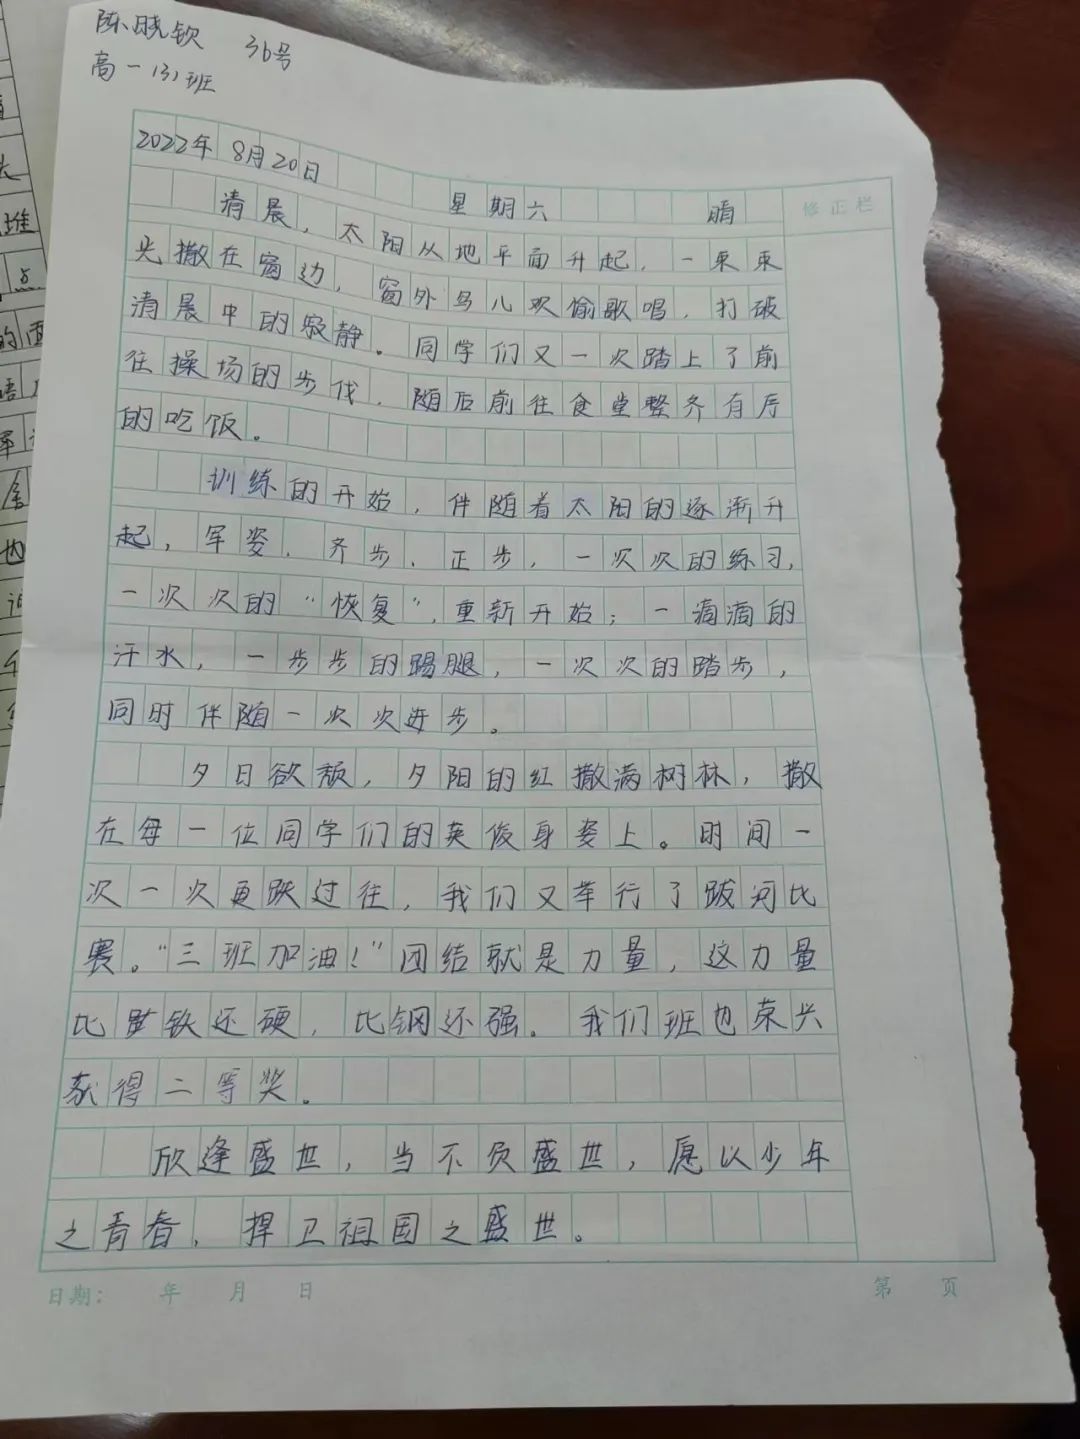 陈晓钦 36号
高一(3)班
2022年8月20日
星期六 晴
修正栏
清晨，太阳从地平面升起，一束束
光撒在窗边，窗外鸟儿欢偷歌唱，打破
清晨中的寂静。同学们又一次踏上了前
往操场的步伐，随后前往食堂整齐有序
的吃饭。
训练的开始，伴随着太阳的逐渐升
起，军姿、齐步、正步，一次次的练习，
一次次的“恢复”，重新开始；一滴滴的
汗水，一步步的踢腿，一次次的踏步，
同时伴随一次次进步。
夕日欲颓，夕阳的红撒满树林，撒
在每一位同学们的英俊身姿上。时间一
次一次更跌过往，我们又举行了跋河比
赛。“三班加油！”团结就是力量，这力量
比铁还硬，比钢还强。我们班也荣兴
获得二等奖。
欣逢盛世，当不负盛世，愿以少年
之青春，捍卫祖国之盛世。
日期： 年 月 日 第 页